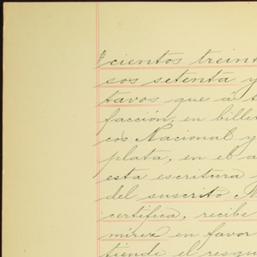 cientos treint
sos setenta y
tavos que á s
facción, en bille
cos Nacional y
plata, en el a
esta escritura
del suscrito N
certifica, recibe
mirez en favor
tiende el resgu